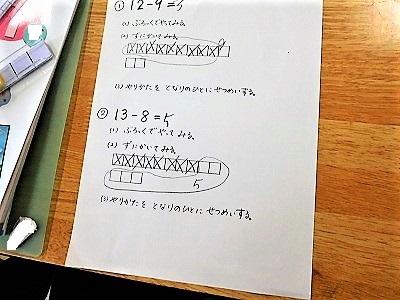 ① 12-9=5
(1) ぶろっくでやってみる。
(2) ずにかいてみる。
(3) やりかたを となりのひとに せつめいする。
② 13-8=5
(1) ぶろっくでやってみる。
(2) ずにかいてみる。
5
(3) やりかたを となりのひとに せつめいする。